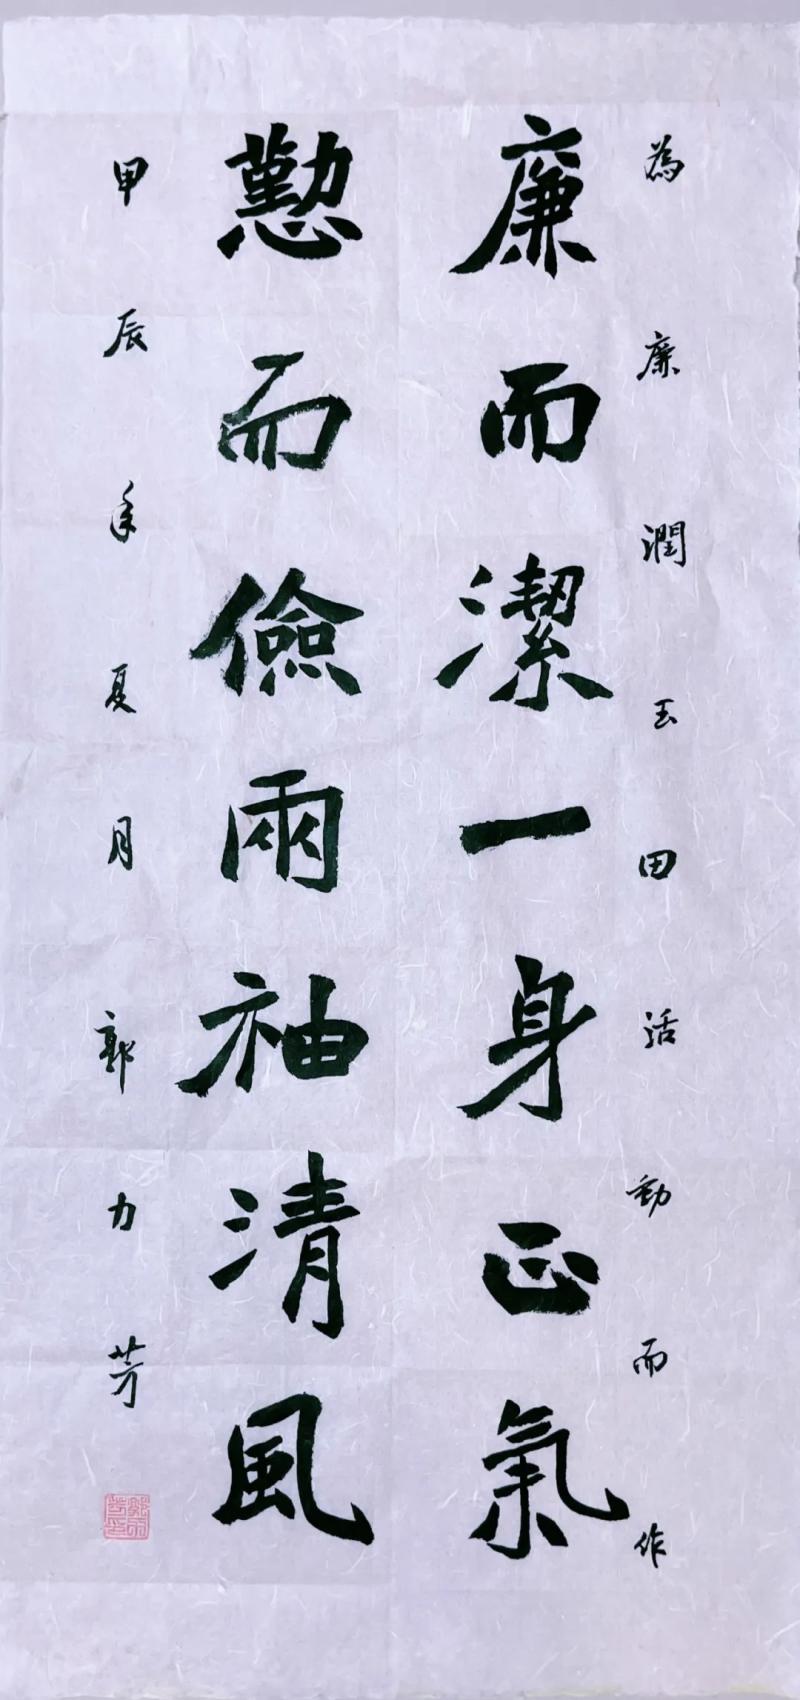 為廉潤玉田活動而作
廉而潔一身正氣
懃而儉兩袖清風
甲辰年夏月郭力芳